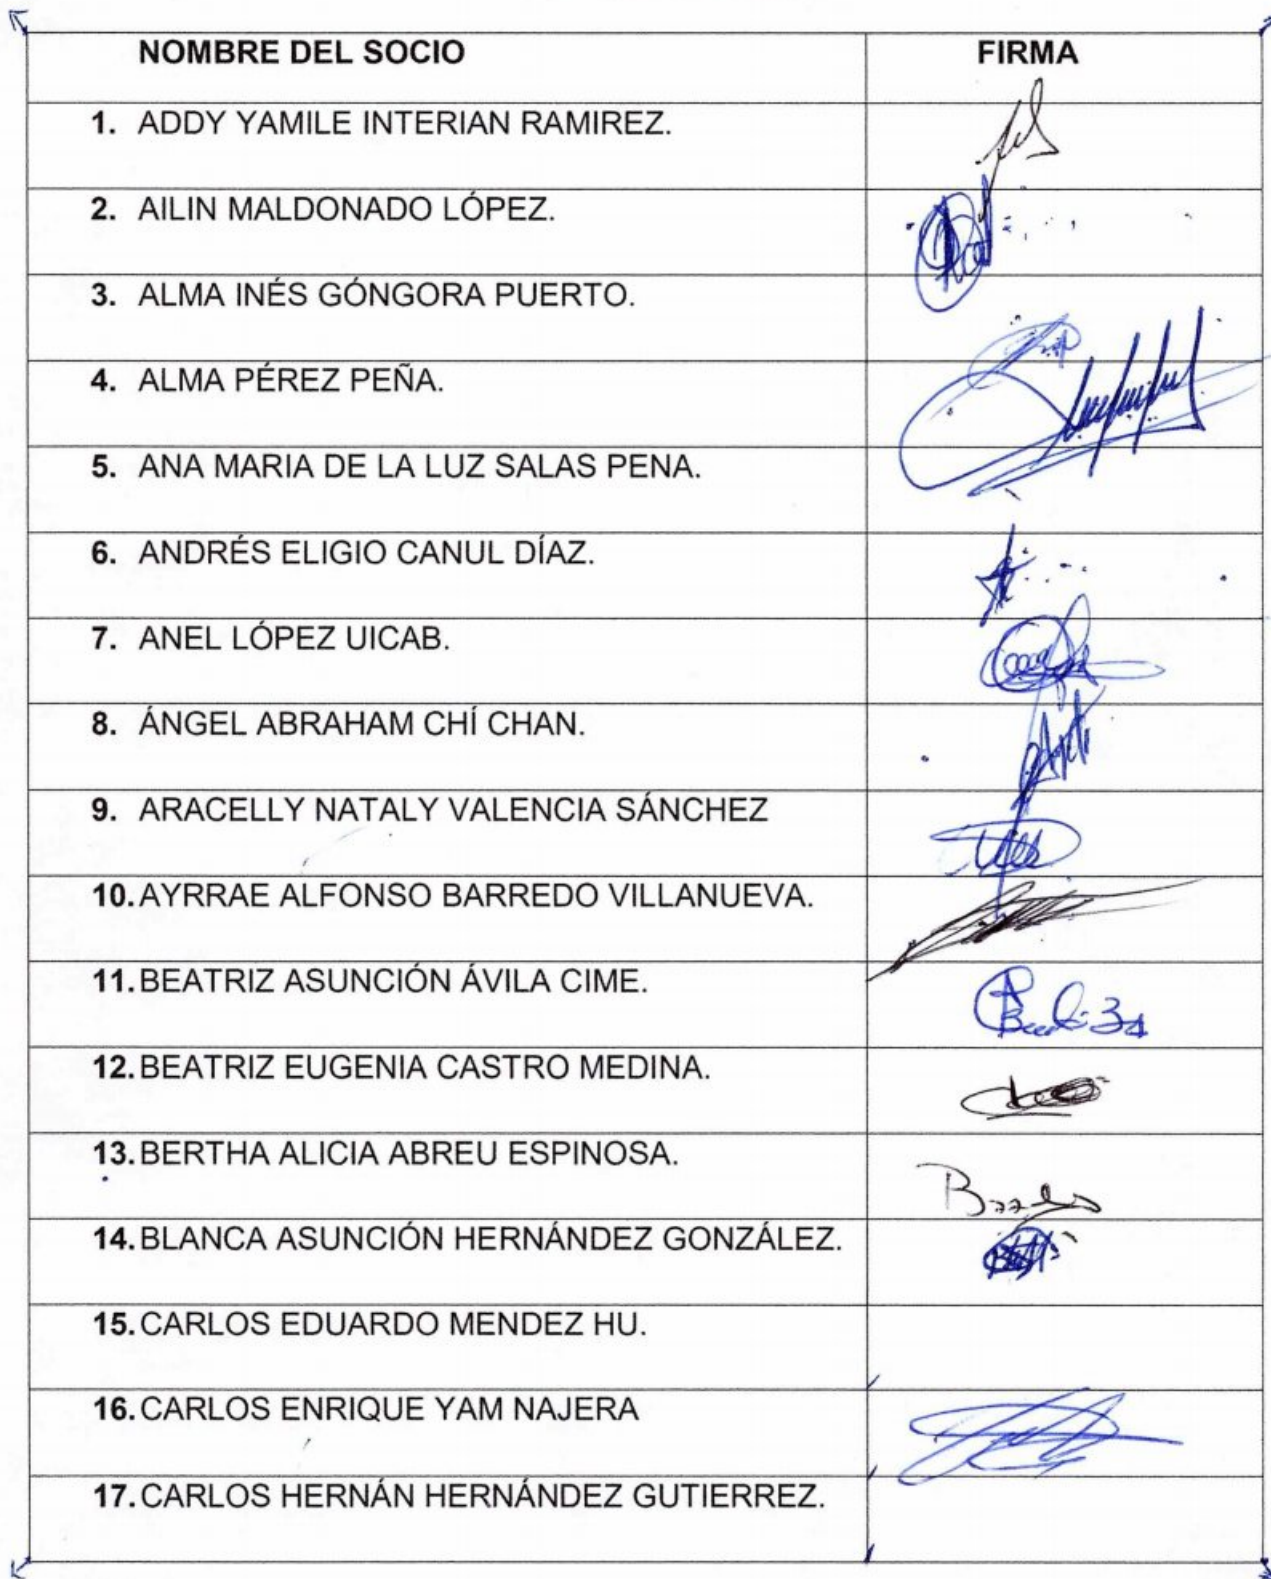 NOMBRE DEL SOCIO FIRMA
1. ADDY YAMILE INTERIAN RAMIREZ.
2. AILIN MALDONADO LÓPEZ.
3. ALMA INÉS GÓNGORA PUERTO.
4. ALMA PÉREZ PEÑA.
5. ANA MARIA DE LA LUZ SALAS PENA.
6. ANDRÉS ELIGIO CANUL DÍAZ.
7. ANEL LÓPEZ UICAB.
8. ÁNGEL ABRAHAM CHÍ CHAN.
9. ARACELLY NATALY VALENCIA SÁNCHEZ
10. AYRRAE ALFONSO BARREDO VILLANUEVA.
11. BEATRIZ ASUNCIÓN ÁVILA CIME.
12. BEATRIZ EUGENIA CASTRO MEDINA.
13. BERTHA ALICIA ABREU ESPINOSA.
14. BLANCA ASUNCIÓN HERNÁNDEZ GONZÁLEZ.
15. CARLOS EDUARDO MENDEZ HU.
16. CARLOS ENRIQUE YAM NAJERA
17. CARLOS HERNÁN HERNÁNDEZ GUTIERREZ.